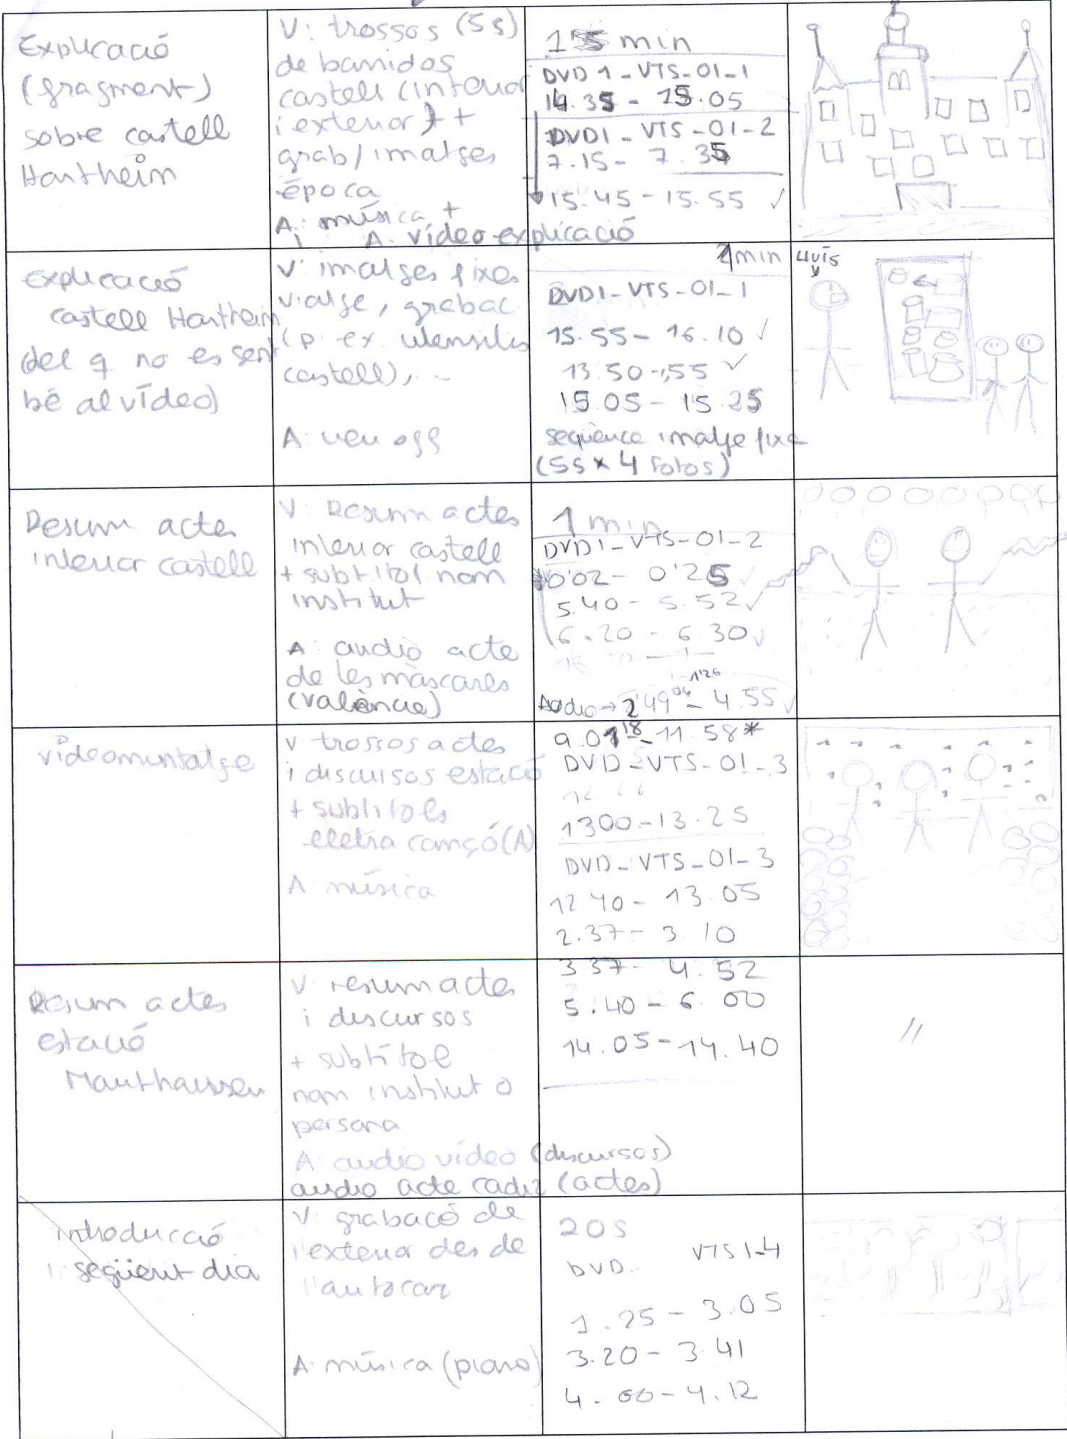 Explicació
(fragment)
sobre castell
Hartheim
V: trossos (5s)
de barridos
castell (interior
i exterior) +
grab/imatges
època
A: música +
A. vídeo explicació
15 min
DVD 1 - VTS-01-1
14.35 - 15.05
DVD1 - VTS-01-2
7.15 - 7.35
15.45 - 15.55 ✓
Explicació
castell Hartheim
(del q no es sent
bé al vídeo)
V: imatges fixes
viatge, grabac
(p. ex. utensilis
castell), ...
A: veu off
1 min
DVD1-VTS-01-1
15.55 - 16.10 ✓
13.50-,55 ✓
15.05 - 15.25
seqüència imatge fixe
(5s x 4 fotos)
LLUÍS
Resum actes
interior castell
V: Resum actes
interior castell
+ subtítol nom
institut
A: audio acte
de les màscares
(València)
1 min
DVD1-VTS-01-2
0'02 - 0'25
5.40 - 5.52 ✓
6.20 - 6.30 ✓
1'26
Audio → 2'49 - 4.55 ✓
videomuntatge
V trossos actes
i discursos estació
+ subtítols
lletra cançó (A)
A música
9.01 18 - 11.58*
DVD-VTS-01-3
1300-13.25
DVD-VTS-01-3
12 40 - 13 05
2.37 - 3 10
Resum actes
estació
Mauthausen
V: resum actes
i discursos
+ subtítol
nom institut o
persona
A: audio vídeo (discursos)
audio acte cadiz (actes)
3 37 - 4.52
5.40 - 6 00
14.05 - 14.40
"
introducció
següent dia
V: grabació de
l'exterior des de
l'autocar
A: música (piano)
20s
DVD. VTS 1-4
1.25 - 3.05
3.20 - 3 41
4.00 - 4.12